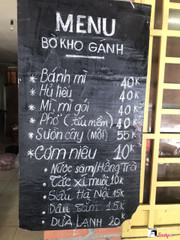 MENU
BÒ KHO GÁNH
* Bánh mì 40K
* Hủ tiếu 40K
* Mì, mì gói 40K
* Phở (rau mầm) 40K
* Sườn cây (MỚI) 55K
* Cơm niêu 10K
* Nước sâm/Hồng Trà
* Tắc xí muội 10K
* Sấu Hà Nội 15K
* 15K
* DỪA LẠNH 20